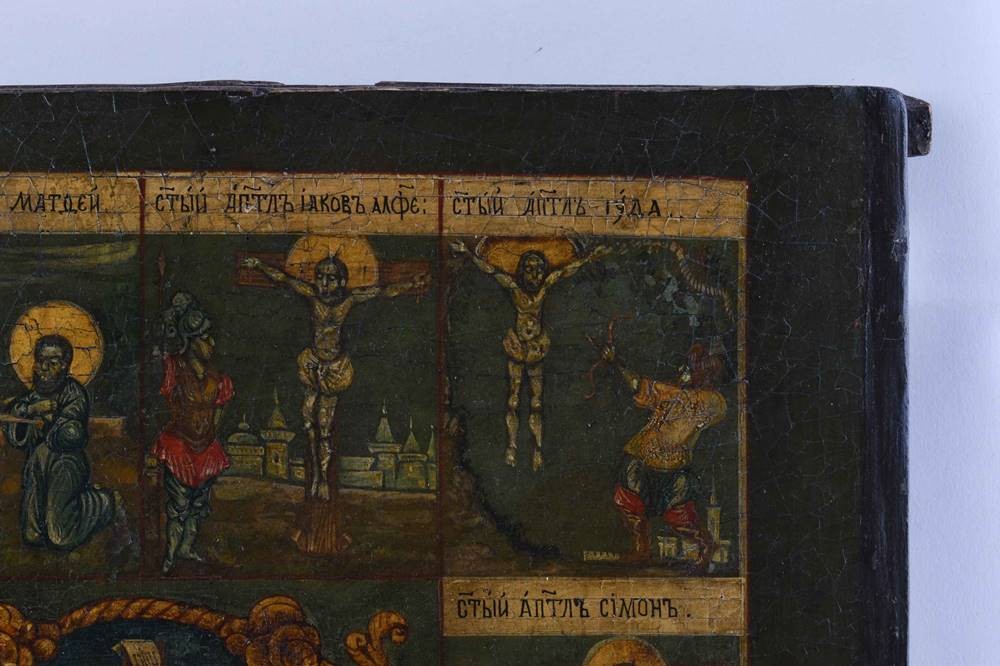 МАТѲЕЙ
СТЫЙ АПТЛЪ ІАКОВЪ АЛФЕ:
СТЫЙ АПТЛЪ ІУДА.
СТЫЙ АПТЛЪ СІМОНЪ.